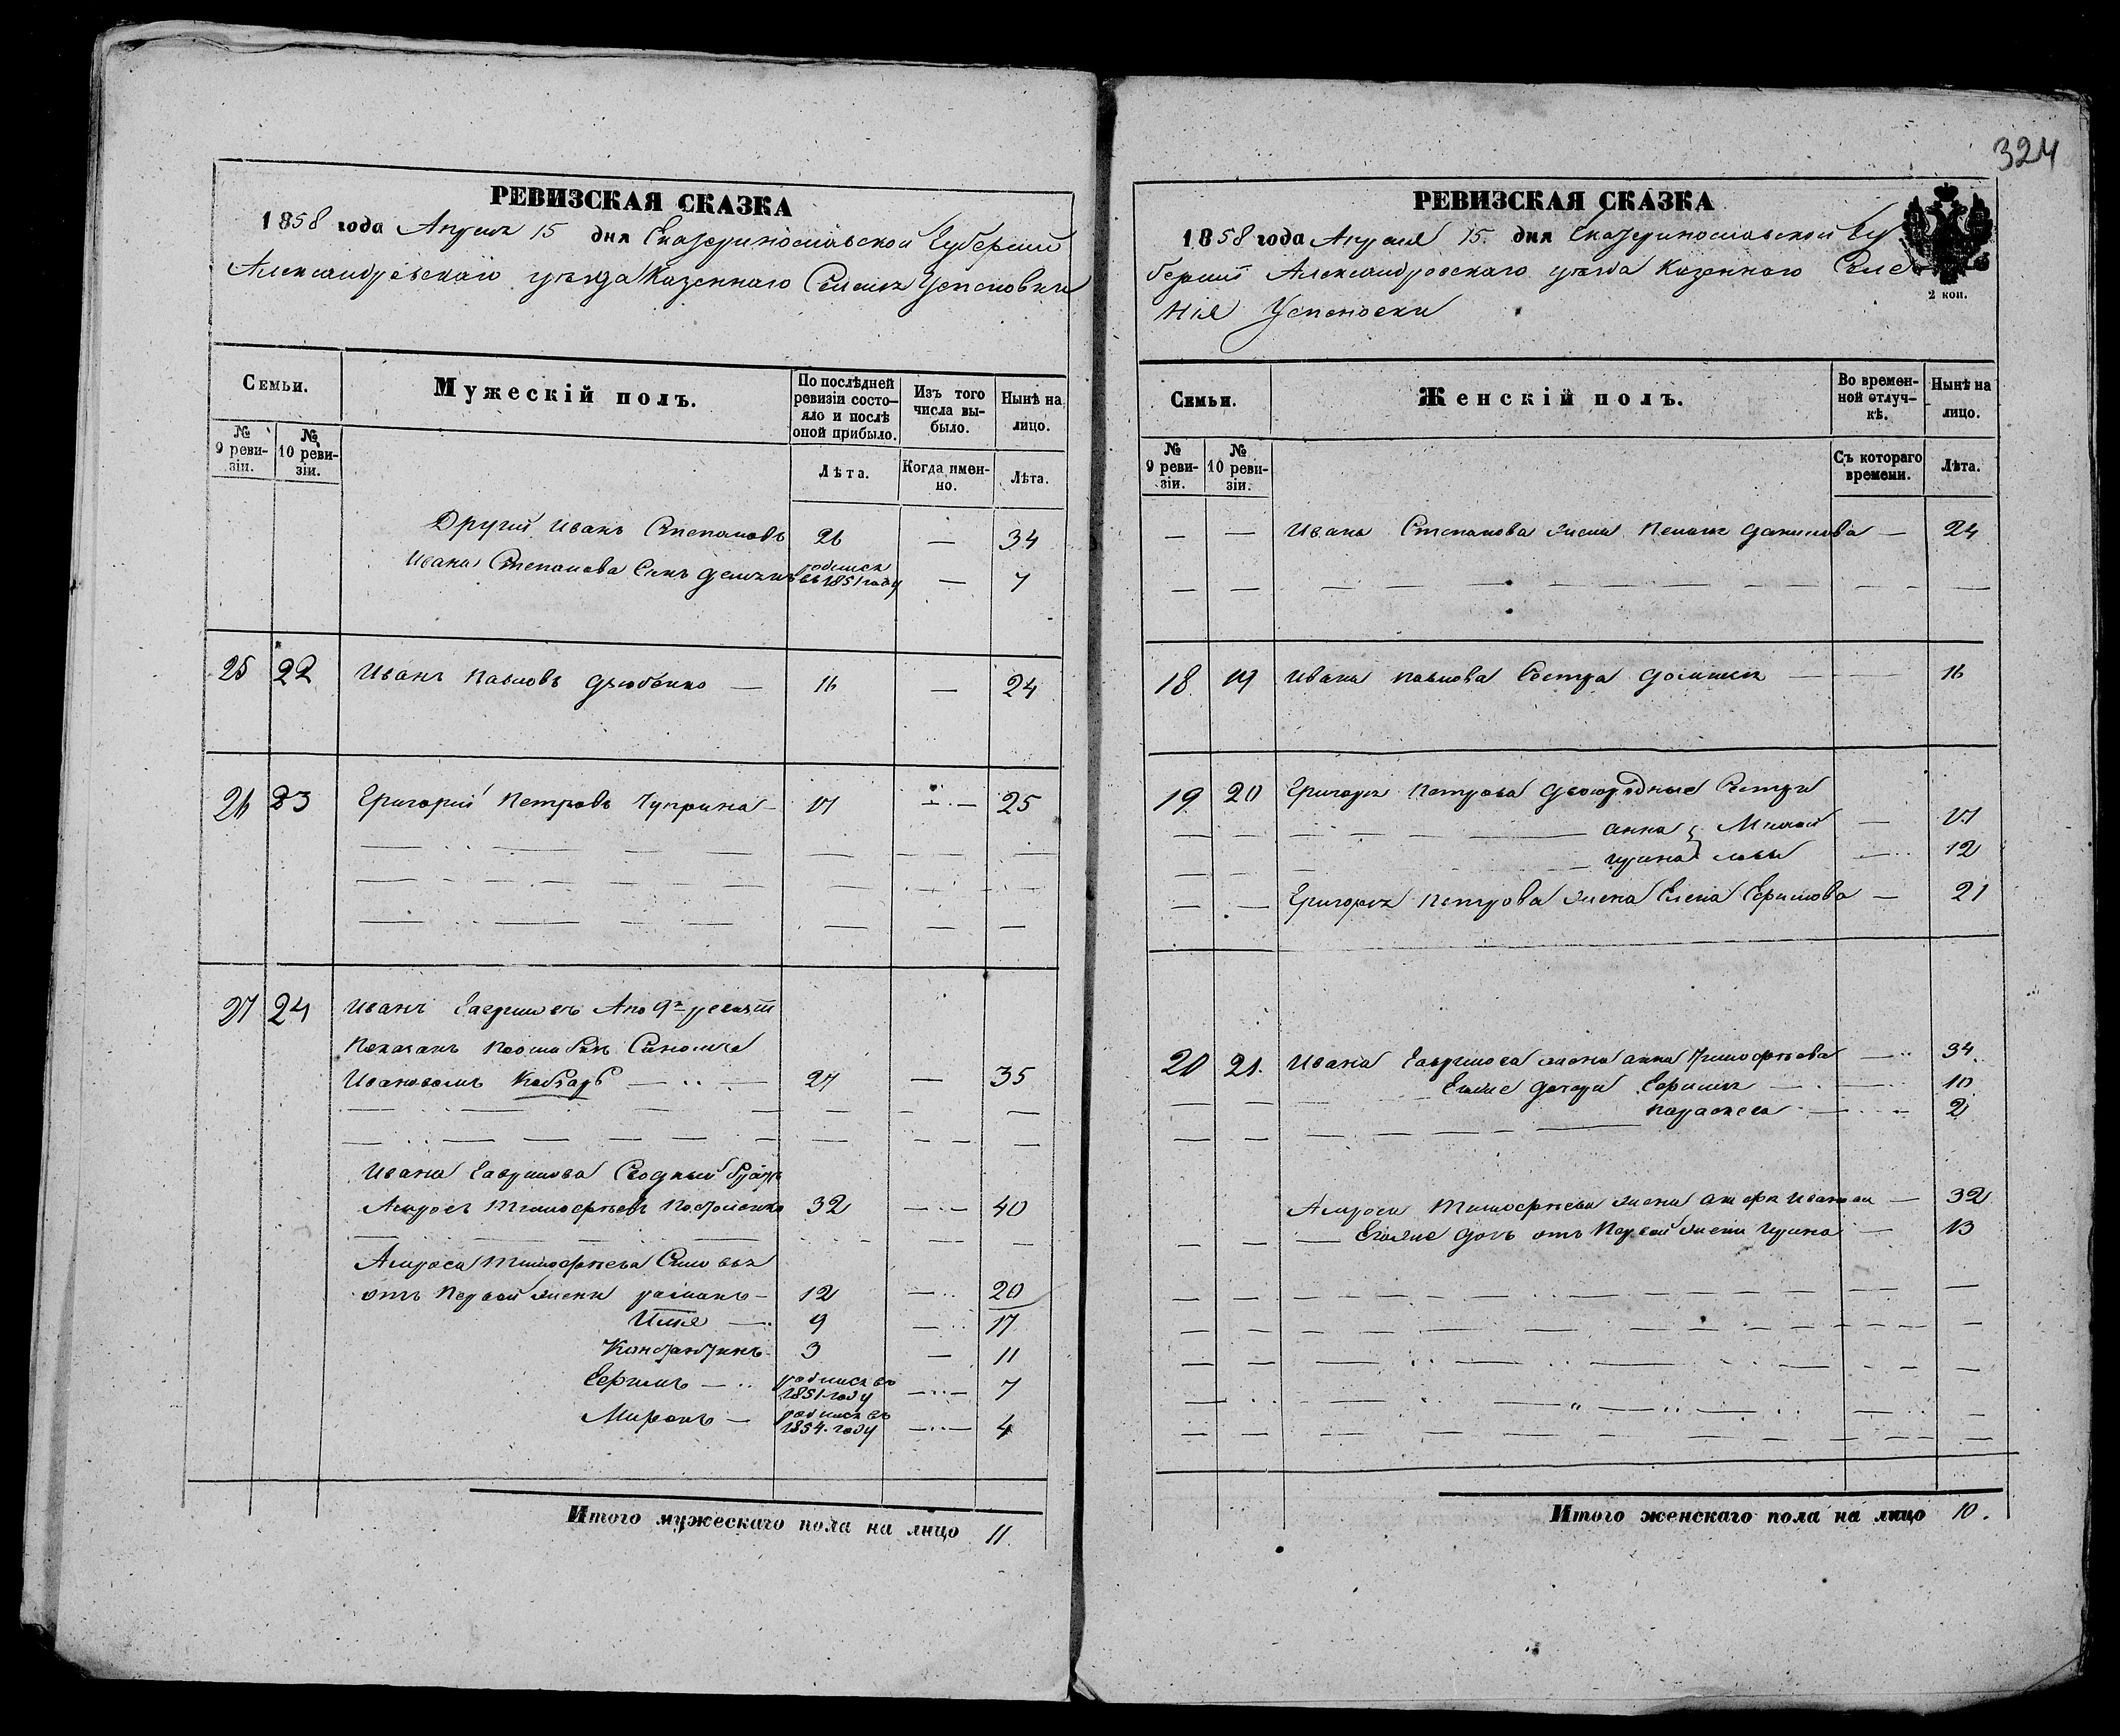 324
РЕВИЗСКАЯ СКАЗКА
1858 года Апреля 15 дня Екатеринославской Губернии
Александровскаго уезда Казеннаго Селения Успеновки
Семьи.
Мужескій полъ.
По послѣдней ревизіи состояло и послѣ оной прибыло.
Изъ того числа выбыло.
Нынѣ на лицо.
№ 9 ревизіи.
№ 10 ревизіи.
Лѣта.
Когда именно.
Лѣта.
Другий Иванъ Степановъ 26 — 34
Ивана Степанова Сынъ родился въ 1851 году — 7
25 22 Иванъ Павловъ Дзюбенко — 16 — 24
26 23 Григорий Петровъ Чуприна — 17 — 25
27 24 Иванъ Гавриловъ А по 9й ревизіи
Показанъ
Ивановымъ Кобзарь 27 — 35
Ивана Гаврилова Сводный братъ
Амросъ Тимофеевъ 32 — 40
Амроса Тимофеева Сыновья
отъ Первой жены романъ — 12 — 20
Илья — 9 — 17
Константинъ 3 — 11
Ефимъ — родился въ 1851 году — 7
Миронъ — родился въ 1854 году — 4
Итого мужескаго пола на лицо 11.
РЕВИЗСКАЯ СКАЗКА
1858 года Апреля 15. дня Екатеринославской Гу
бернии Александровскаго уезда Казеннаго Селе
ния Успеновки
2 коп.
Семьи.
Женскій полъ.
Во временной отлучкѣ.
Нынѣ на лицо.
№ 9 ревизіи.
№ 10 ревизіи.
Съ котораго времени.
Лѣта.
— — Ивана Степанова жена Данилова — 24
18 19 Ивана Павлова Сестра — 16
19 20 Григория Петрова двоюродные Сестры
анна Михай — 17
ирина ловы — 12
Григория Петрова жена Елена Ефимова — 21
20 21. Ивана Гаврилова жена анна Тимофеева — 34
Егоже дочери Ефимия — 10
параскева — 2
Амроса Тимофеева жена Иванова — 32
Егоже дочь отъ Первой жены ирина — 13
Итого женскаго пола на лицо 10.